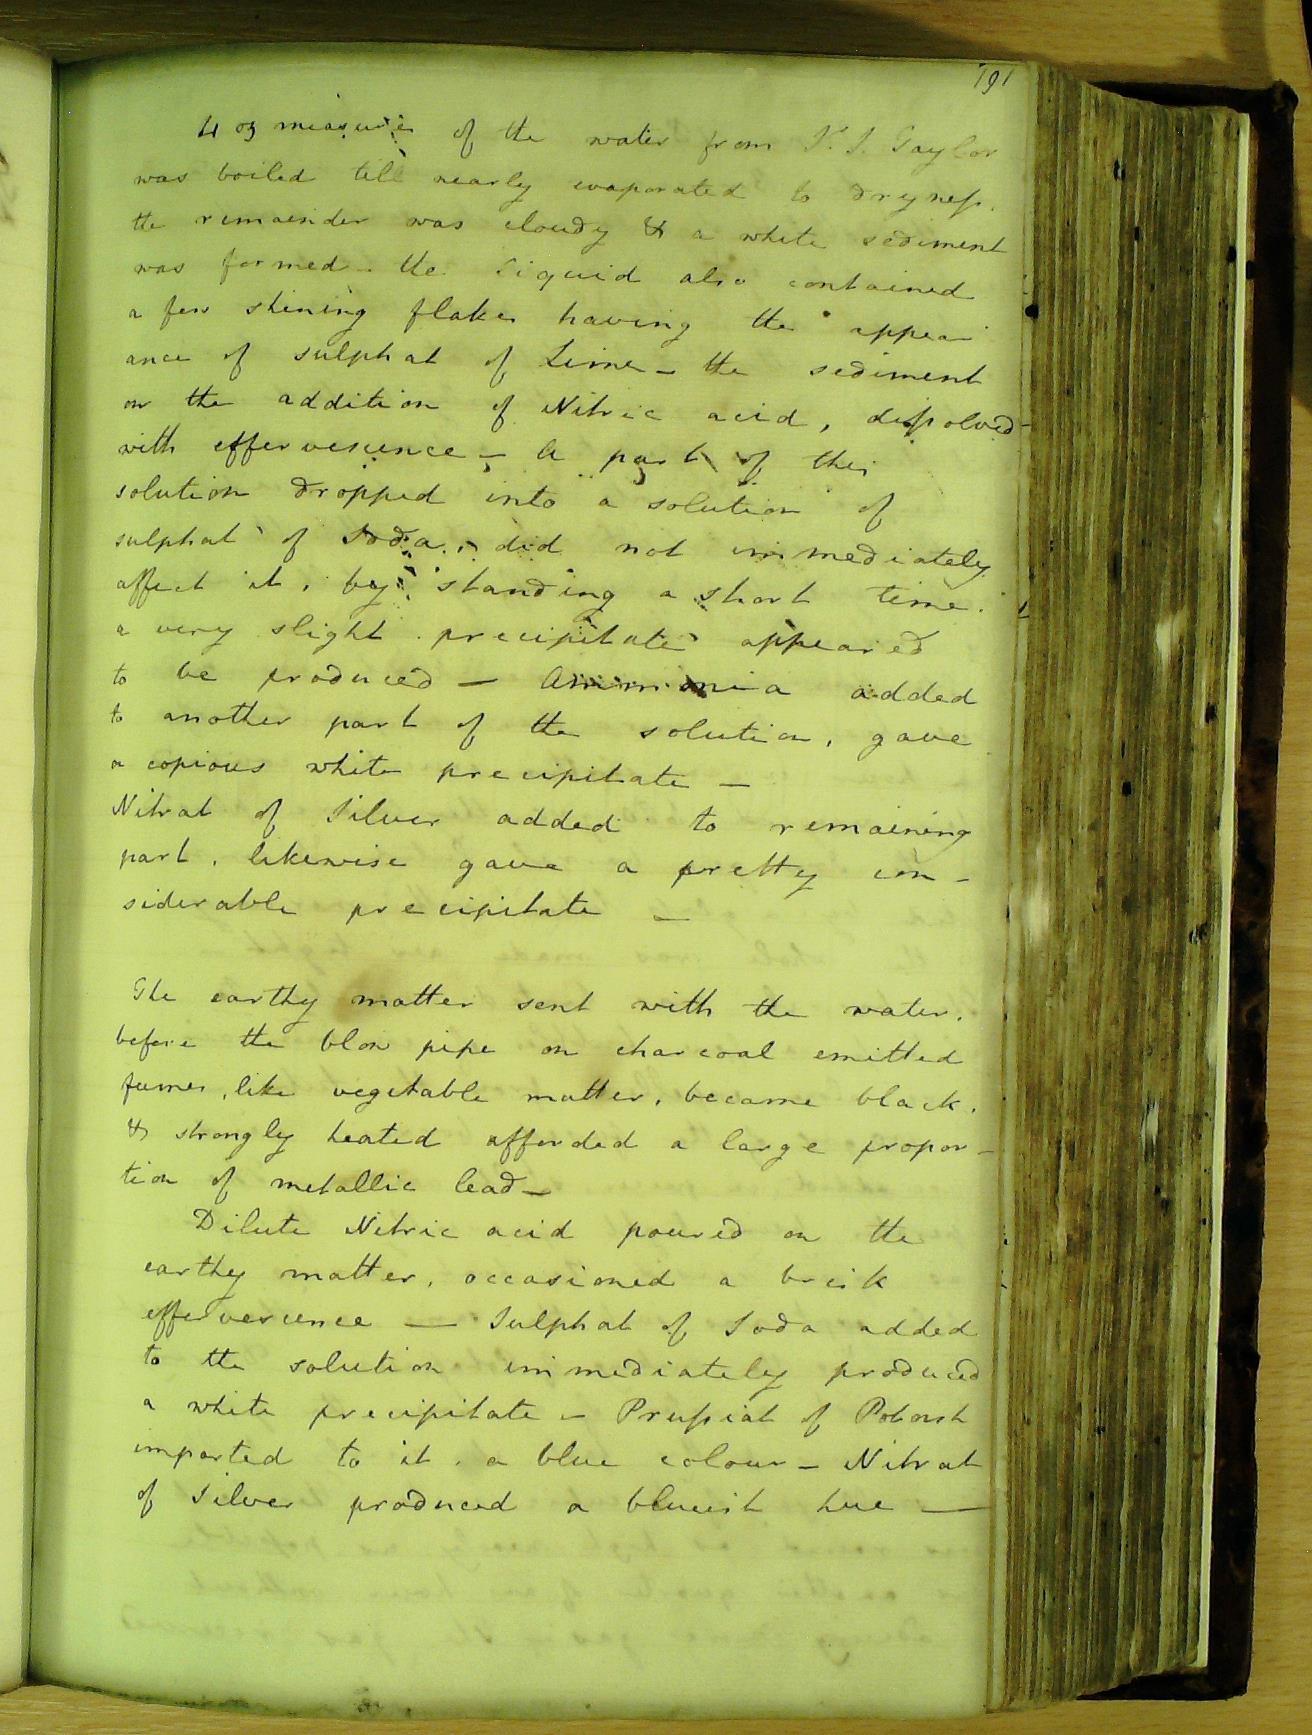 191
4 oz measures of the water from T. J. Taylor
was boiled till nearly evaporated to dryness.
the remainder was cloudy & a white sediment
was formed - the liquid also contained
a few shining flakes having the appear
ance of sulphat of Lime - the sediment
on the addition of Nitric acid, dissolved
with effervescence - A part of this
solution dropped into a solution of
sulphat of Soda, did not immediately
affect it, by standing a short time.
a very slight precipitate appeared
to be produced - Ammonia added
to another part of the solution, gave
a copious white precipitate -
Nitrat of Silver added to remaining
part, likewise gave a pretty con -
siderable precipitate -
The earthy matter sent with the water,
before the blow pipe on charcoal emitted
fumes, like vegetable matter, became black,
& strongly heated afforded a large propor -
tion of metallic lead -
Dilute Nitric acid poured on the
earthy matter, occasioned a brisk
effervescence - Sulphat of Soda added
to the solution immediately produced
a white precipitate - Prussiat of Potash
imparted to it, a blue colour - Nitrat
of Silver produced a blueish hue -